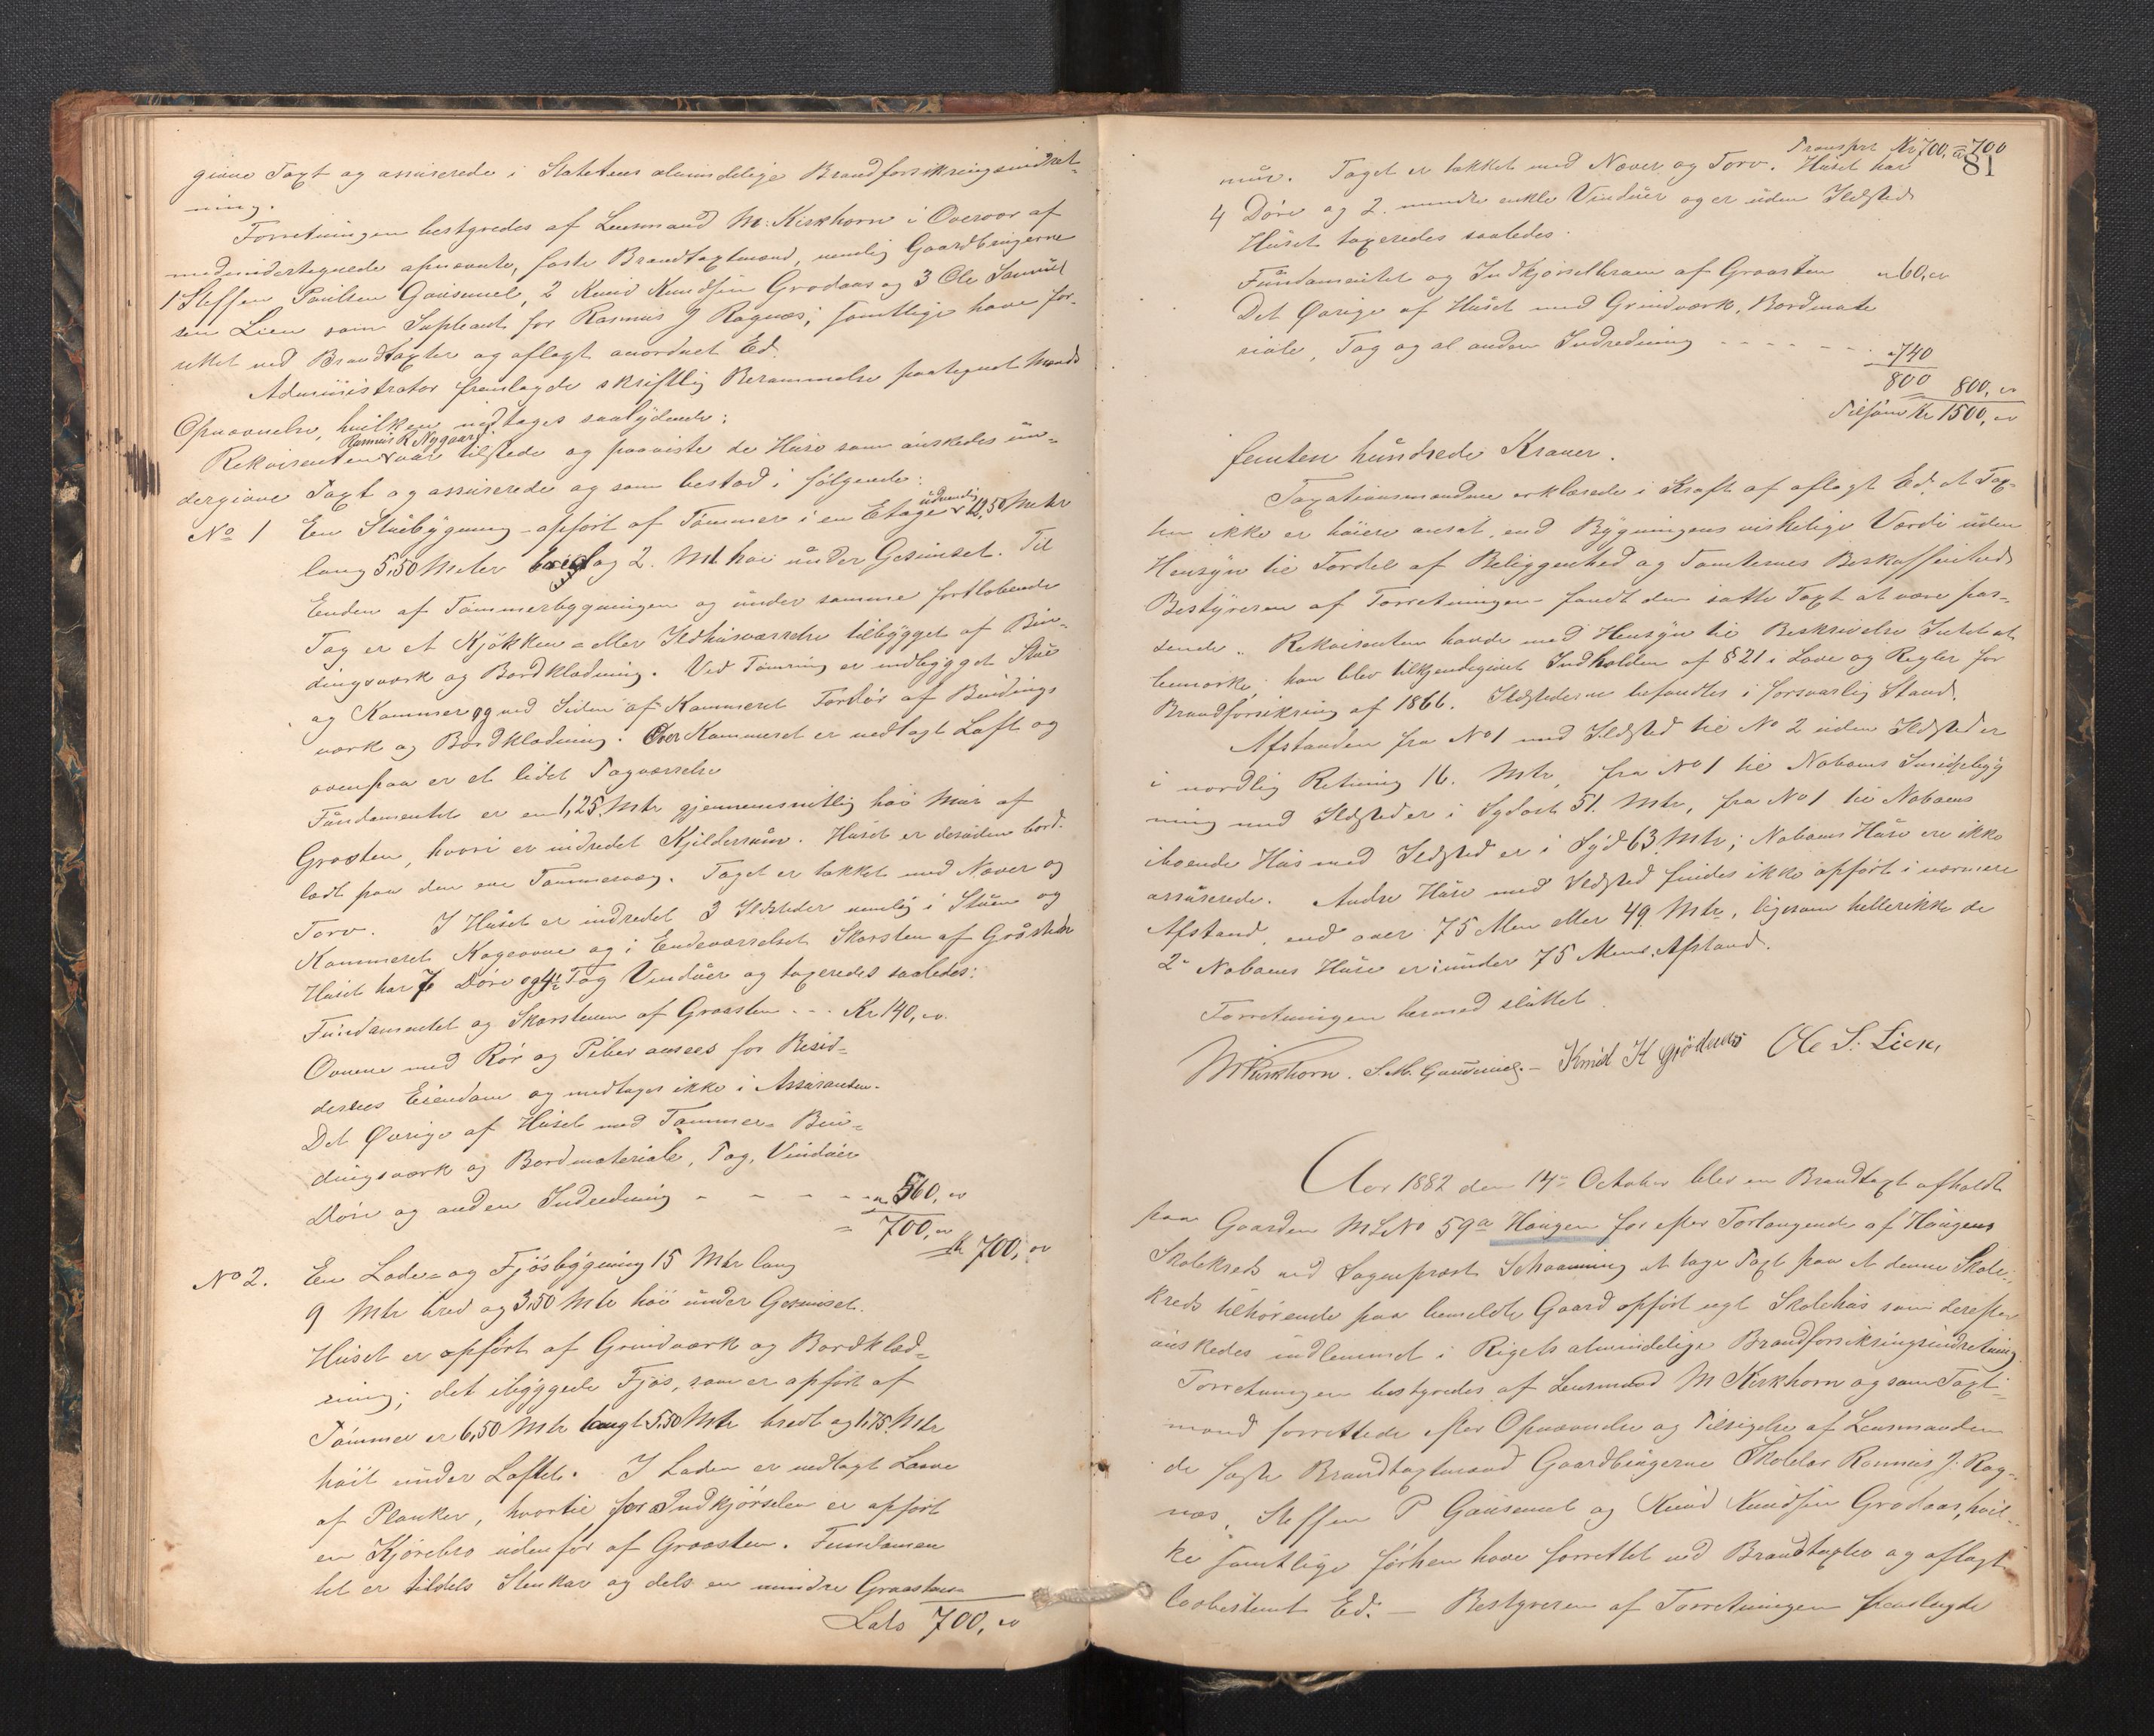 givne Taxt og assurerede i Statetens almindelige Brandforsikringsindret-
ning.
Forretningen bestyredes af Lensmand M. Kirkhorn i Overvær af
medundertegnede opnævnte, faste Brandtaxtmænd, nemlig Gaardbrugerne
1 Steffen Paulsen Gausemel, 2 Knud Knudsen Grodaas og 3 Ole Samuel
sen Lien som Supleant for Rasmus J Ragnæs; samtlige have for-
rettet ved Brandtaxter og aflagt anordnet Ed.
Administrator fremlagde skriftlig Berammelse paategnet Mænds
Opnævnelse, hvilken vedtages saalydende:
Rasmus R Nygaard
Rekvirenten var tilstede og paaviste de Huse som ønskedes un-
dergivne Taxt og assurerede og som bestod i følgende:
No 1 En Stuebygning opført af Tømmer i en Etage udvendig 12,50 Meter
lang 5,50 Meter bred og 2. Mt høi under Gesimset. Til
Enden af Tømmerbygningen og under samme fortløbende
Tag er et Kjøkken- eller Ildhusværrelse tilbygget af Bin-
dingsværk og Bordklædning. Ved Tømring er indbygget Stue
og Kammer og ved Siden af Kammeret Fordør af Bindings
værk og Bordklædning. Over Kammeret er nedlagt Loft og
ovenpaa er et lidet Tagværrelse
Fundamentet er en 1,25 Mtr gjennemsnitlig høi Mur af
Graasten, hvori er indredet Kjælderrum. Huset er desuden bord-
lædt paa den ene Tømmervæg. Taget er tækket med Næver og
Torv. I Huset er indredet 3 Ildsteder nemlig i Stuen og
Kammeret Kogeovne og i Endeværrelset Skorsten af Gråsten
Huset har 7 Døre og 4 Fag Vinduer og taxeredes saaledes:
Fundamentet og Skorstenen af Graasten . - . Kr 140,00.
Ovnene med Rør og Piber ansees for Besid-
derens Eiendom og medtages ikke i Assurancen.
Det Øvrige af Huset med Tømmer- Bin-
dingsværk og Bordmateriale, Tag, Vinduer
Døre og anden Indredning - - - - - " 560,00
= 700,00
Kr 700,00
No 2. En Lade- og Fjøsbygning 15 Mtr lang
9 Mtr bred og 3,50 Mtr høi under Gesimset.
Huset er opført af Grindværk og Bordklæd-
ning; det ibyggede Fjøs, som er opført af
Tømmer er 6,50 Mtr langt 5,50 Mtr bredt og 1,75 Mtr
høit under Loftet. I Laden er nedlagt Laave
af Planker, hvortil for Indkjørselen er opført
en Kjørebro udenfor af Graasten. Fundamen
tet er tildels Stenkar og dels en mindre Graastens-
Lats 700,00
Transprt Kr 700,00 = 700
81
mur. Taget er tækket med Næver og Torv. Huset har
4 Døre og 2. mindre enkle Vinduer og er uden Ildsted
Huset taxeredes saaledes.
Fundamentet og Indkjørselbroen af Graasten " 60,00
Det Øvrige af Huset med Grindværk, Bordmate
riale, Tag og al anden Indredning - - - - - - " 740
800 800,00
Tilsam Kr 1500,00
femten hundrede Kroner.
Taxationsmændene erklærede i Kraft af aflagt Ed, at Tax-
ten ikke er høiere ansat, end Bygningens virkelige Værdi uden
Hensyn til Fordel af Beliggenhed og Tomternes Beskaffenhed.
Bestyreren af Forretningen fandt den satte Taxt at være pas-
sende. Rekvirenten havde med Hensyn til Beskrivelse Intet at
bemærke, han blev tilkjendegivet Indholden af § 21 i Love og Regler for
Brandforsikring af 1866. Ildstederne befandtes i forsvarlig Stand.
Afstanden fra No 1 med Ildsted til No 2 uden Ildsted er
i nordlig Retning 16. Mtr, fra No 1 til Naboens Smidjebyg
ning med Ildsted er i Sydost 51. Mtr, fra No 1 til Naboens
iboende Hus med Ildsted er i Syd 63 Mtr; Naboens Huse ere ikke
assurerede. Andre Huse med Ildsted findes ikke opført i nærmere
Afstand, end over 75 Alen eller 49 Mtr, ligesom hellerikke de
2de Naboens Huse er under 75 Alens Afstand.
Forretningen hermed sluttet.
MKirkhorn. S. P. Gausemel. - Knud K Grödaas Ole S. Lien,
Aar 1882 den 14de October blev en Brandtaxt afholdt
paa Gaarden ML No 59a Haugen for efter Forlangende af Haugens
Skolekreds ved Sogneprest Schaanning at tage Taxt paa et denne Skole-
kreds tilhørende paa bemeldte Gaard opført nyt Skolehus som derefter
ønskedes indlemmet i Rigets almindelige Brandforsikringsindretning.
Forretningen bestyredes af Lensmand M Kirkhorn og som Taxt-
mænd forrettede efter Opnævnelse og Tilsigelse af Lensmanden
de faste Brandtaxtmænd Gaardbrugerne Skolelær Rasmus J. Rag-
næs, Steffen P Gausemel og Knud Knudsen Grodaas, hvil-
ke samtlige førhen have forrettet ved Brandtaxter og aflagt
lovbestemt Ed. — Bestyreren af Forretningen fremlagde